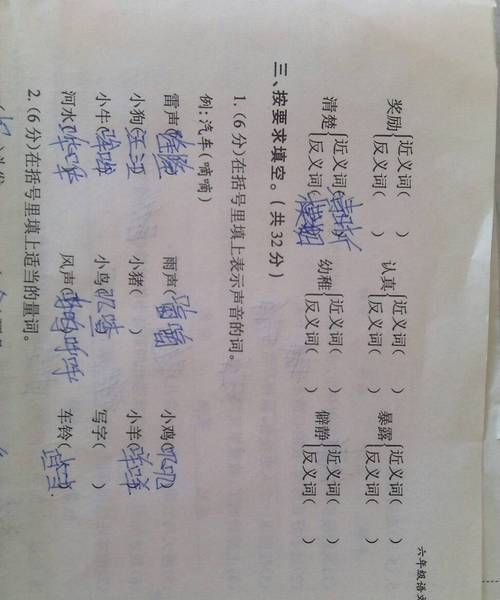 六年级语文
奖励{近义词(　　) 认真{近义词(　　) 暴露{近义词(　　)
反义词(　　) 反义词(　　) 反义词(　　)
清楚{近义词(清晰) 幼稚{近义词(　　) 僻静{近义词(　　)
反义词(模糊) 反义词(　　) 反义词(　　)
三、按要求填空。(共32分)
1.(6分)在括号里填上表示声音的词。
例:汽车(嘀嘀)
雷声(隆隆) 雨声( 小鸡(叽叽
小狗(汪汪 小猪(　　) 小羊(咩咩
小牛( 小鸟(叽喳 写字(　　)
河水(哗哗 风声( 车铃(
2.(6分)在括号里填上适当的量词。